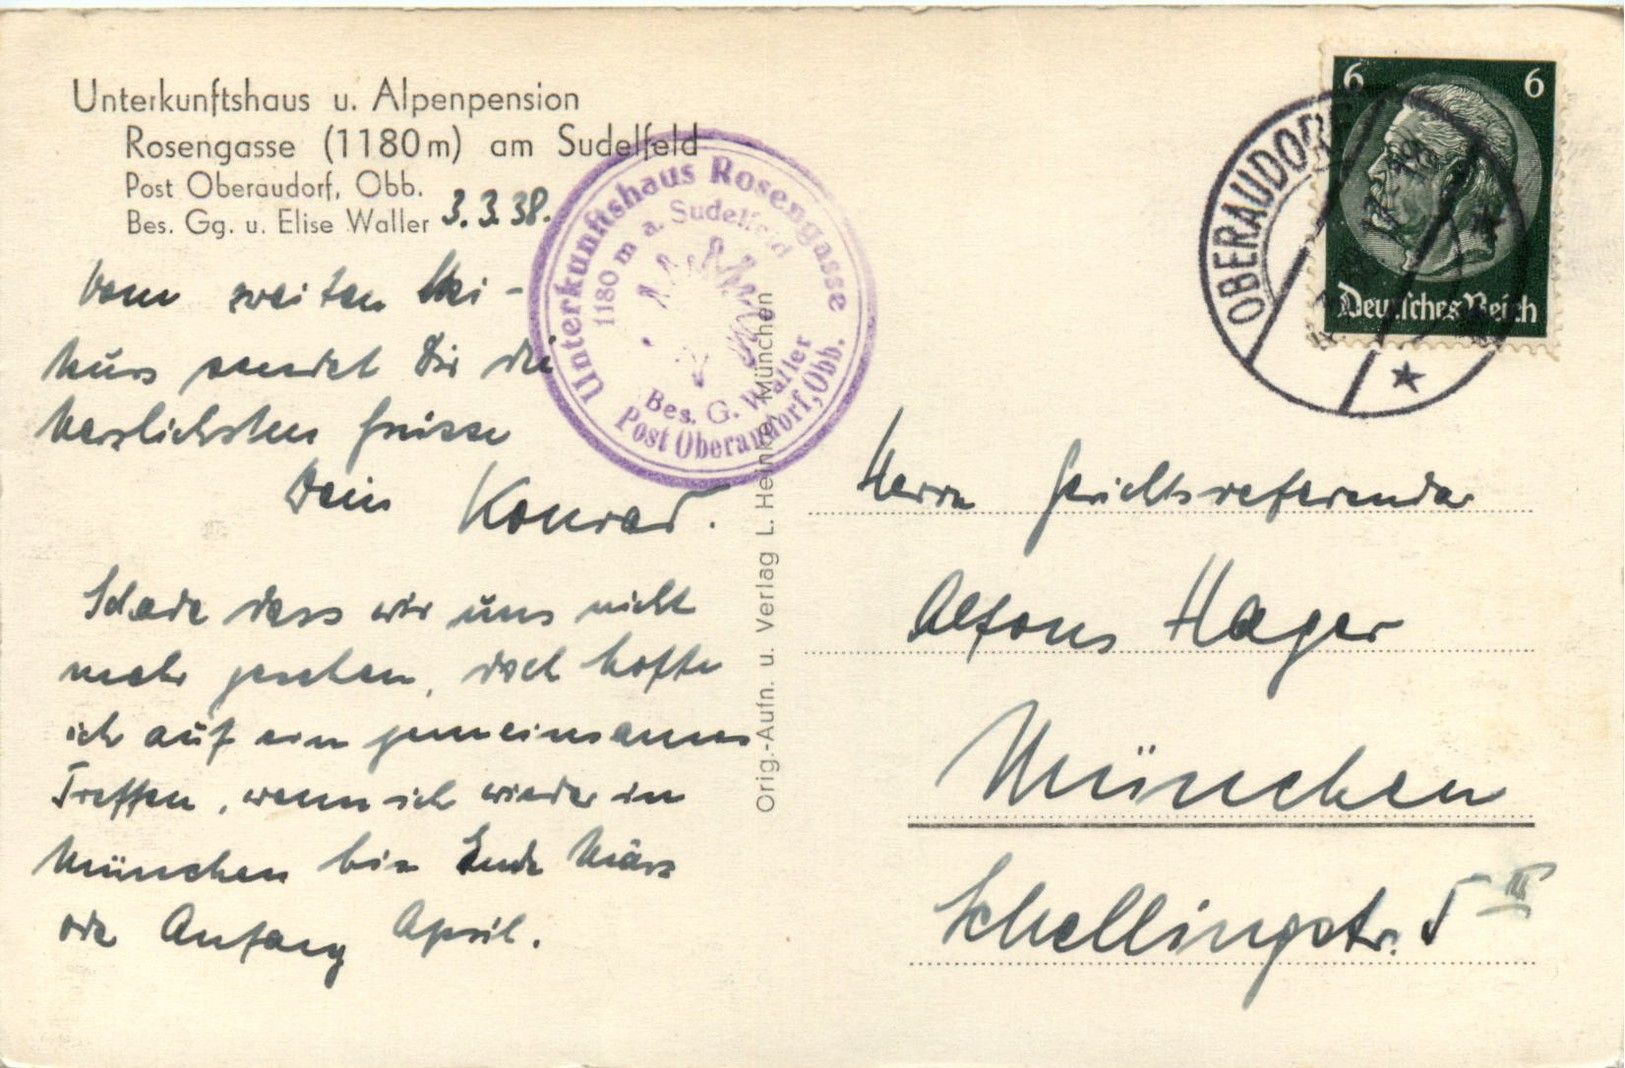 Unterkunftshaus u. Alpenpension
Rosengasse (1180 m) am Sudelfeld
Post Oberaudorf, Obb.
Bes. Gg. u. Elise Waller
3.3.38.
Vom zweiten Ski-
kurs sendet Dir die
herzlichsten Grüsse
Dein Konrad.
Schade dass wir uns nicht
mehr gesehen, doch hoffe
ich auf ein gemeinsames
Treffen, wenn ich wieder in
München bin Ende März
oder Anfang April.
Unterkunftshaus Rosengasse
1180 m a. Sudelfeld
Bes. G. Waller
Post Oberaudorf, Obb.
Orig.-Aufn. u. Verlag L. Heinkel, München
6 6
Deutsches Reich
OBERAUDORF
Herrn Gerichtsreferendar
Alfons Hager
München
Schellingstr. 5 III